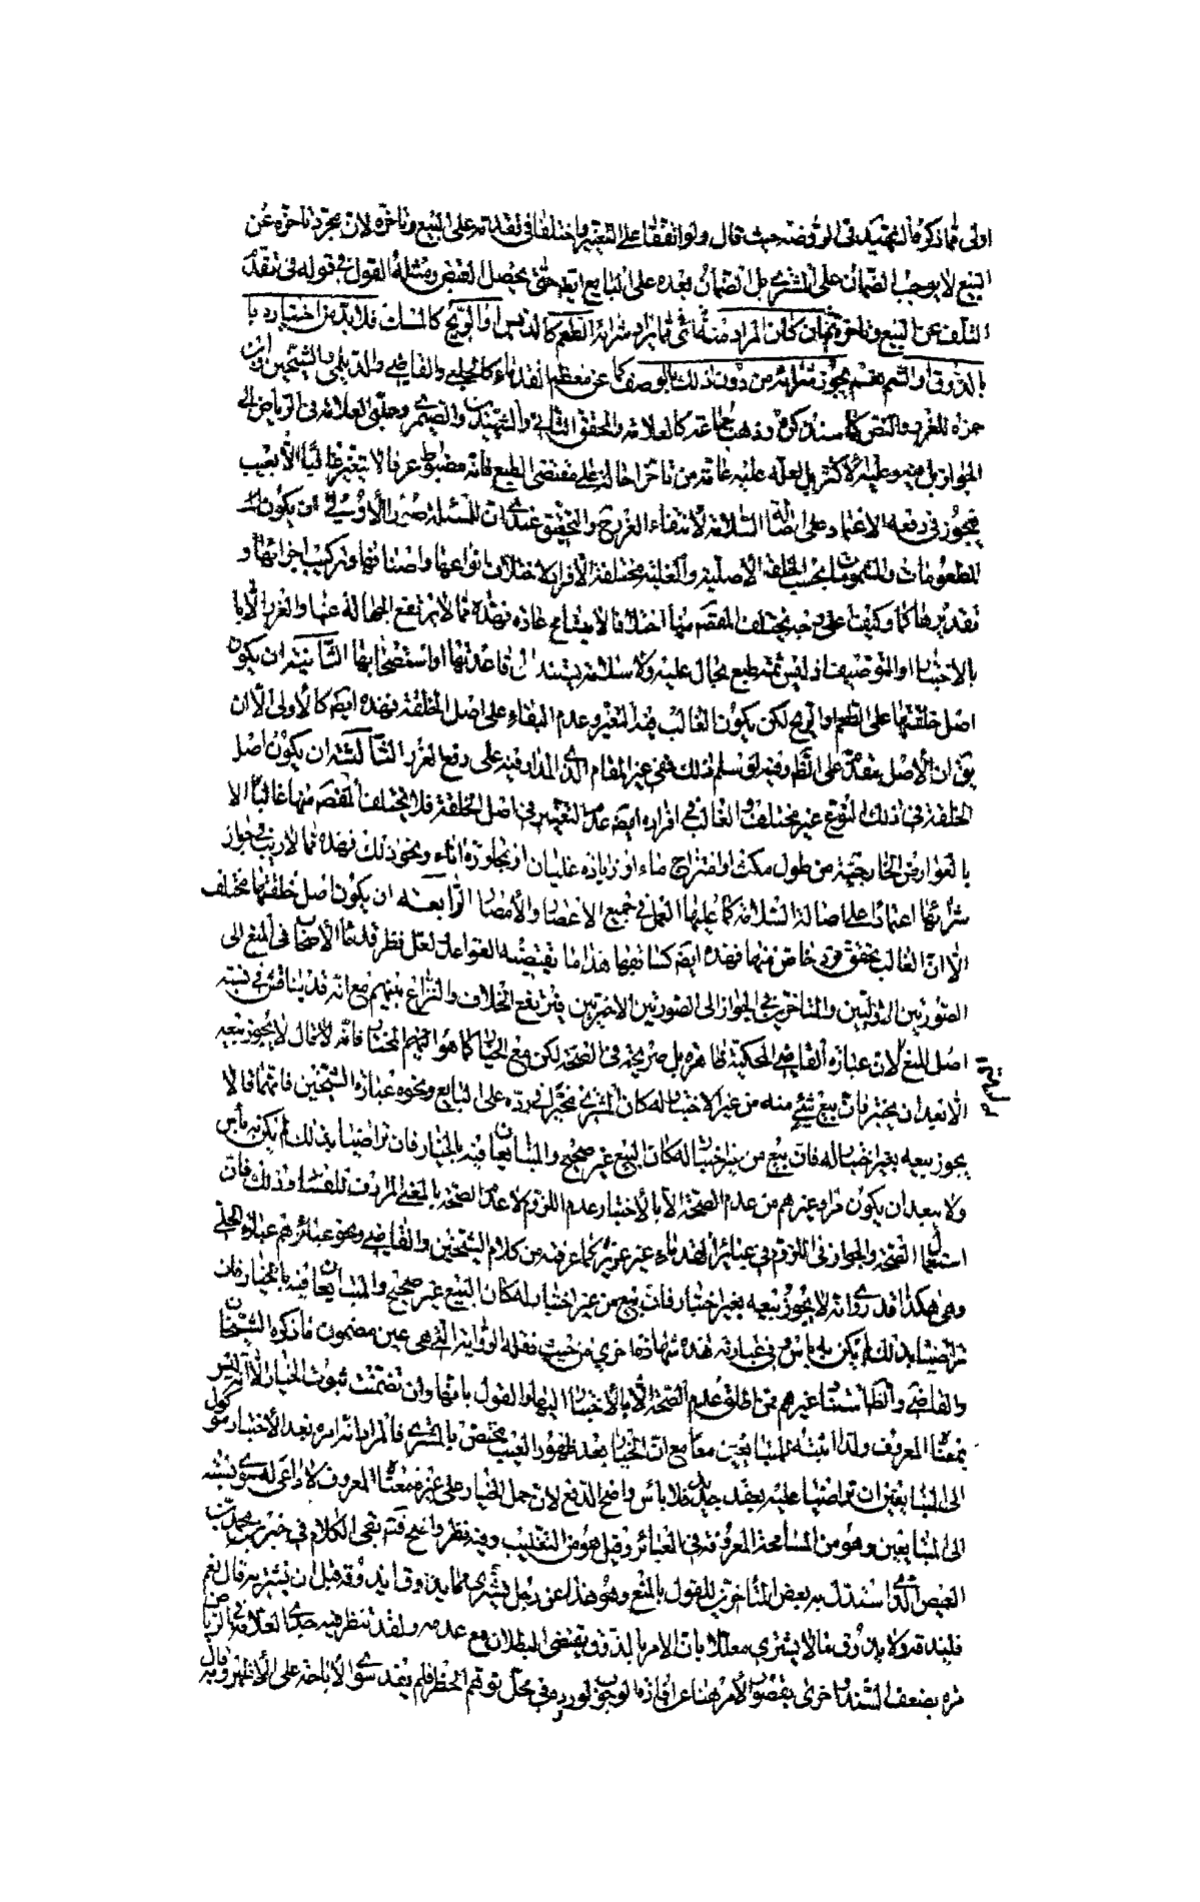 اولى مما ذكره الشهيد في الروضة حيث قال ولو اتفقا على التغيير واختلفا في تقدمه على البيع وتاخره لان مجرد تاخره عن
البيع لا يوجب الضمان على المشتري بل الضمان بعده على البايع ايضا حتى يحصل القبض ومثله القول في قوله في تقدم
التلف عن البيع وتاخره فان كان المراد منه شئ مما يراد شرائه الطعم كالدبس او الريح كالمسك فلا بد من اختباره با
بالذوق او الشم نعم يجوز شرائه من دون ذلك بالوصف كما عن معظم القدماء كالحلبي والقاضي والديلمي والشيخين وابن
حمزه للغرر والنص كما ستذكره وذهب جماعة كالعلامة والمحقق الثاني والشهيدين والصيمري وحكى العلامة في الرياض الى
الجواز بل فيه وعليه الاكثر بل لعله عليه عامة من تاخر احالة على مقتضى الطبع فانه مضبوط عرفا لا يتغير غالبا الا بعيب
فيجوز في رفعه الاعتماد على اصالة السلامة لانتفاء الغرر ح والتحقيق عندي ان للمسئلة صورا الاولى ان يكون
المطعومات والمشمومات بحسب الخلقة الاصلية والغلبة مختلفة الافراد لاختلاف انواعها واصنافها وتركيب اجزائها و
تقديرها كما وكيفا على وجه يختلف القصد منها اختلافا لا يتسامح عادة فهذه مما لا يرتفع الجهالة عنها والغرر الا با
بالاختبار او التوصيف اذ ليس ثمة طبع يحال عليه ولا سلامة يستند الى قاعدتها او استصحابها الثانية ان يكون
اصل خلقتها على الطعم والريح لكن يكون الغالب فيه التغير وعدم البقاء على اصل الخلقة فهذه ايضا كالاولى الا ان
يق ان الاصل مقدم على الظاهر وفيه لو سلم ذلك ففي غير المقام الذي المدار فيه على رفع الغرر الثالثة ان يكون اصل
الخلقة في ذلك النوع غير مختلف والغالب في افراده ايضا عدم التغيير في اصل الخلقة فلا يختلف القصد منها غالبا الا
بالعوارض الخارجية من طول مكث او امتزاج ماء او زيادة غليان او مجاورة اناء ونحو ذلك فهذه مما لا ريب في جواز
شرائها اعتمادا على اصالة السلامة كما عليها العمل في جميع الاعصار والامصار الرابعة ان يكون اصل خلقتها مختلف
الا ان الغالب تحقق فرد خاص منها فهذه ايضا كسابقها هذا ما يقتضيه القواعد لعل نظر قدماء الاصحاب في المنع الى
الصورتين الاوليين والمتاخرين في الجواز الى الصورتين الاخيرتين فيرتفع الخلاف والنزاع بينهم مع انه قد يناقش في نسبة
اصل المنع لان عبارة القاضي المحكية ظاهره بل صريحه في الصحة لكن مع الخيار كما هو المهم المختار فانه قال لا يجوز بيعه
الا بعد ان يختبر فان بيع شئ منه من غير الاختبار له كان المشتري مخيرا في رده على البايع ونحوه عبارة الشيخين فانهما قالا
يجوز بيعه بغير اختبار له فان بيع من غير اختبار له كان البيع غير صحيح والمتبايعان فيه بالخيار فان تراضيا بذلك لم يكن به بأس
ولا يبعد ان يكون مراد غيرهم من عدم الصحة الا بالاختبار عدم اللزوم لا عدم الصحة بالمعنى المرادف للفساد وذلك فان
استعمال الصحة والجواز في اللزوم في عبائر القدماء غير عزيز كما عرفته من كلام الشيخين والقاضي ونحو عبائرهم عبارة الحلي
وهي هكذا قد روى انه لا يجوز بيعه بغير اختبار فان بيع من غير اختبار له كان البيع غير صحيح والمتبايعان فيه بالخيار فان
تراضيا بذلك لم يكن به بأس وفي عبارته هذه شهادة اخرى من حيث نقله الرواية التي هي عين مضمون ما ذكره الشيخان
والقاضي والظاهر استناد غيرهم ممن اطلق عدم الصحة الا بالاختبار اليها والقول بانها وان تضمنت ثبوت الخيار الا انه ليس
بمعناه المعروف ولذا اثبته للمتبايعين معا مع ان الخيار بعد ظهور العيب مختص بالمشتري فالمراد انه امره بعد الاختبار موكول
الى المتبايعين ان تراضيا عليه بعقد جديد فلا بأس واضح الدفع لان حمل الخيار على غير معناه المعروف لا داعي له سوى نسبته
الى المتبايعين وهو من المسامحة المعروفة في العبائر وقيل هو من التغليب وفيه نظر واضح فتم بقي الكلام في خبر محمد بن
العيص الذي استدل به بعض المتاخرين للقول بالمنع وهو هذا عن رجل يشتري ما يذاق ايذوقه قبل ان يشتريه قال نعم
فليذقه ولا يذوق ما لا يشتري معللا بان الامر بالذوق يقتضي البطلان مع عدمه ولقد تنظر فيه جدي العلامة في الرياض
مره بضعف السند واخرى بقصور الامر هنا عن افادة الوجوب لوروده في محل توهم الحظر فلم يفد سوى الاباحة على الاظهر وبه قال